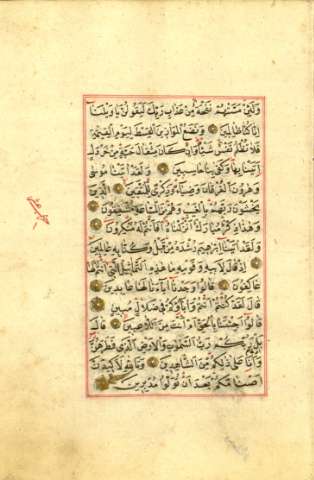 وَلَئِنْ مَسَّتْهُمْ نَفْحَةٌ مِنْ عَذَابِ رَبِّكَ لَيَقُولُنَّ يَا وَيْلَنَا
اِنَّا كُنَّا ظَالِمِينَ وَنَضَعُ الْمَوَازِينَ الْقِسْطَ لِيَوْمِ الْقِيٰمَةِ
فَلَا تُظْلَمُ نَفْسٌ شَيْئًا وَاِنْ كَانَ مِثْقَالَ حَبَّةٍ مِنْ خَرْدَلٍ
اَتَيْنَا بِهَا وَكَفٰى بِنَا حَاسِبِينَ وَلَقَدْ اٰتَيْنَا مُوسٰى
وَهٰرُونَ الْفُرْقَانَ وَضِيَاءً وَذِكْرًا لِلْمُتَّقِينَ اَلَّذِينَ
يَخْشَوْنَ رَبَّهُمْ بِالْغَيْبِ وَهُمْ مِنَ السَّاعَةِ مُشْفِقُونَ
وَهٰذَا ذِكْرٌ مُبَارَكٌ اَنْزَلْنَاهُ اَفَاَنْتُمْ لَهُ مُنْكِرُونَ
وَلَقَدْ اٰتَيْنَا اِبْرٰهِيمَ رُشْدَهُ مِنْ قَبْلُ وَكُنَّا بِهِ عَالِمِينَ
اِذْ قَالَ لِاَبِيهِ وَقَوْمِهِ مَا هٰذِهِ التَّمَاثِيلُ الَّتِي اَنْتُمْ لَهَا
عَاكِفُونَ قَالُوا وَجَدْنَا اٰبَاءَنَا لَهَا عَابِدِينَ
قَالَ لَقَدْ كُنْتُمْ اَنْتُمْ وَاٰبَاؤُكُمْ فِي ضَلَالٍ مُبِينٍ
قَالُوا اَجِئْتَنَا بِالْحَقِّ اَمْ اَنْتَ مِنَ اللَّاعِبِينَ قَالَ
بَلْ رَبُّكُمْ رَبُّ السَّمٰوَاتِ وَالْاَرْضِ الَّذِي فَطَرَهُنَّ
وَاَنَا عَلٰى ذٰلِكُمْ مِنَ الشَّاهِدِينَ وَتَاللّٰهِ لَاَكِيدَنَّ
اَصْنَامَكُمْ بَعْدَ اَنْ تُوَلُّوا مُدْبِرِينَ